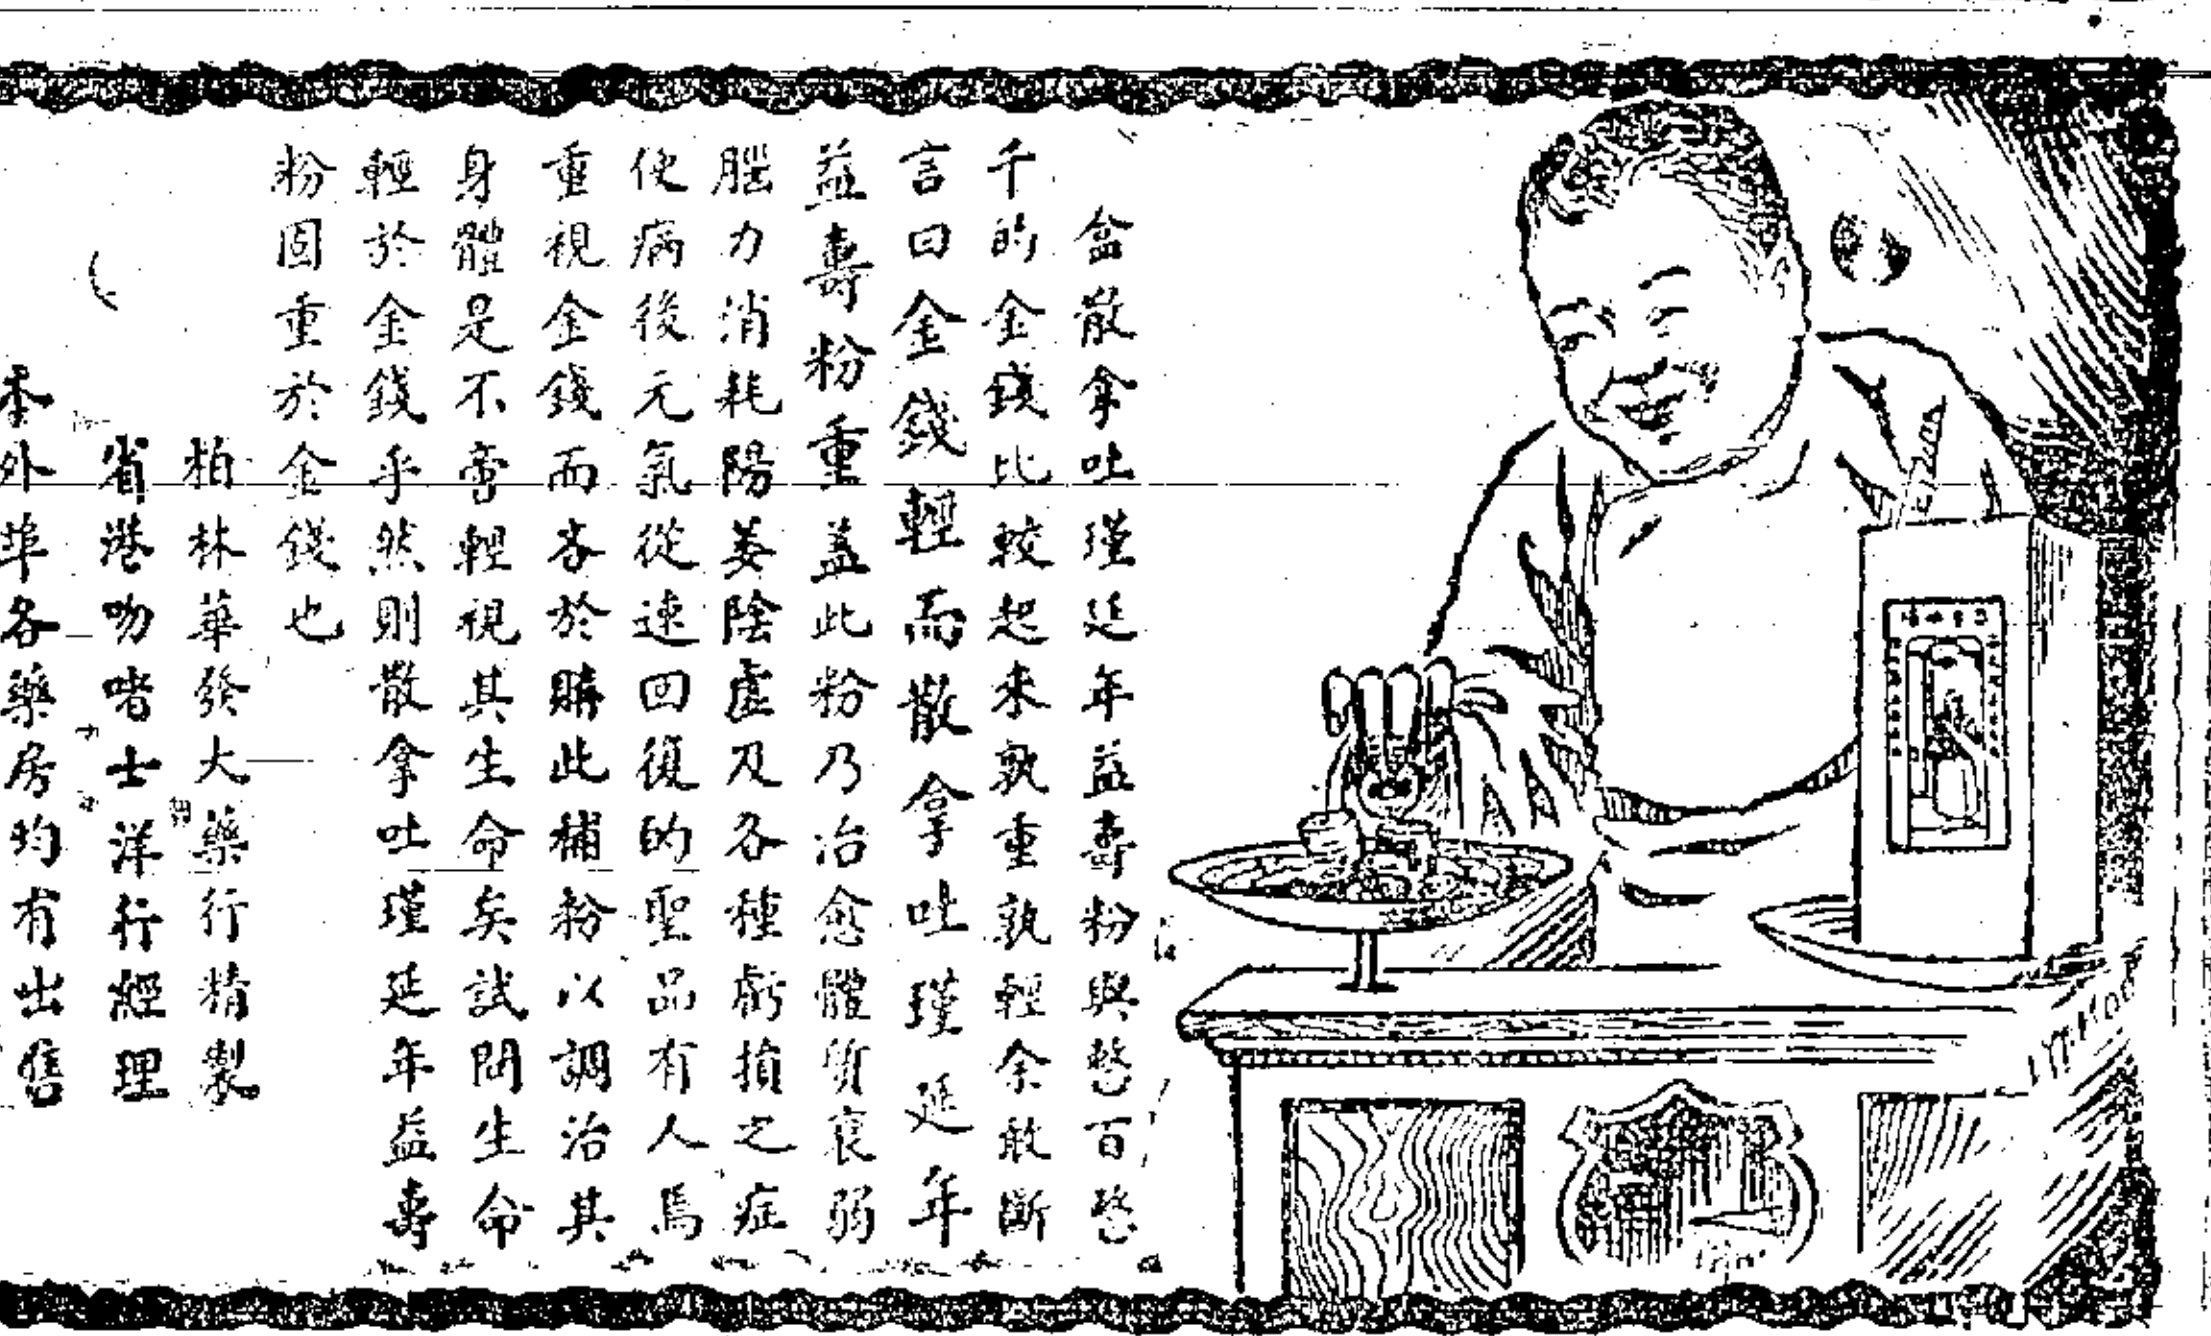 盒散拿吐瑾延年益壽粉與整百整
千的金錢比較起來孰重孰輕余敢斷
言曰金錢輕而散拿吐瑾延年
益壽粉重蓋此粉乃治愈體質衰弱
腦力消耗陽萎陰虛及各種虧損之症
使病後元氣從速回復的聖品有人焉
重視金錢而吝於購此補粉以調治其
身體是不啻輕視其生命矣試問生命
輕於金錢乎然則散拿吐瑾延年益壽
粉固重於金錢也
柏林華發大藥行精製
省港吻啫士洋行經理
本外埠各藥房均有出售